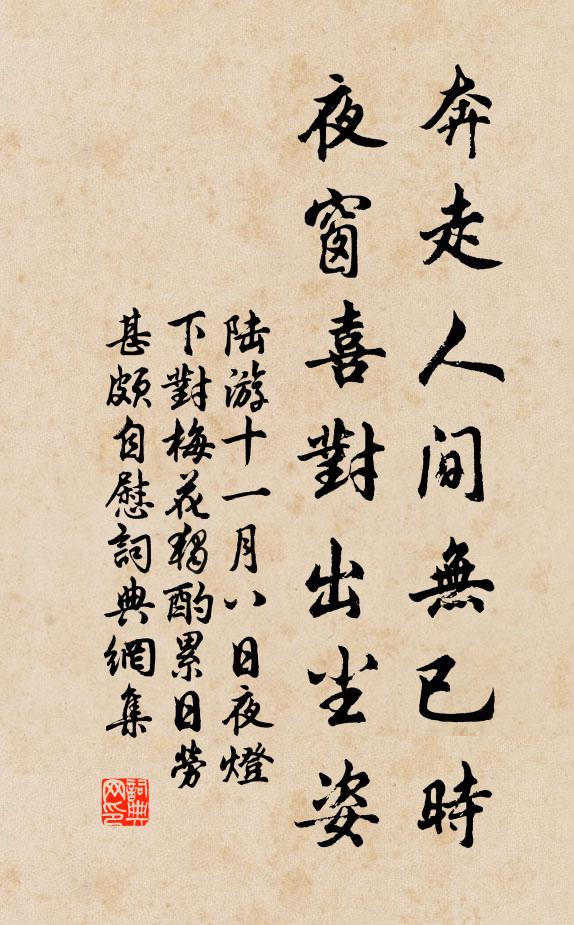 奔走人間無已時
夜窗喜對出尘姿
陆游十一月八日夜燈
下對梅花獨酌累日勞
甚頗自慰詞典網集
詞典
网印